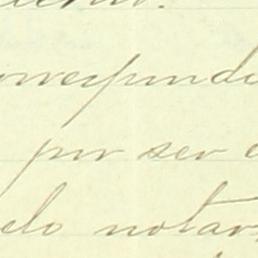 orrespondi
por ser
elo notar